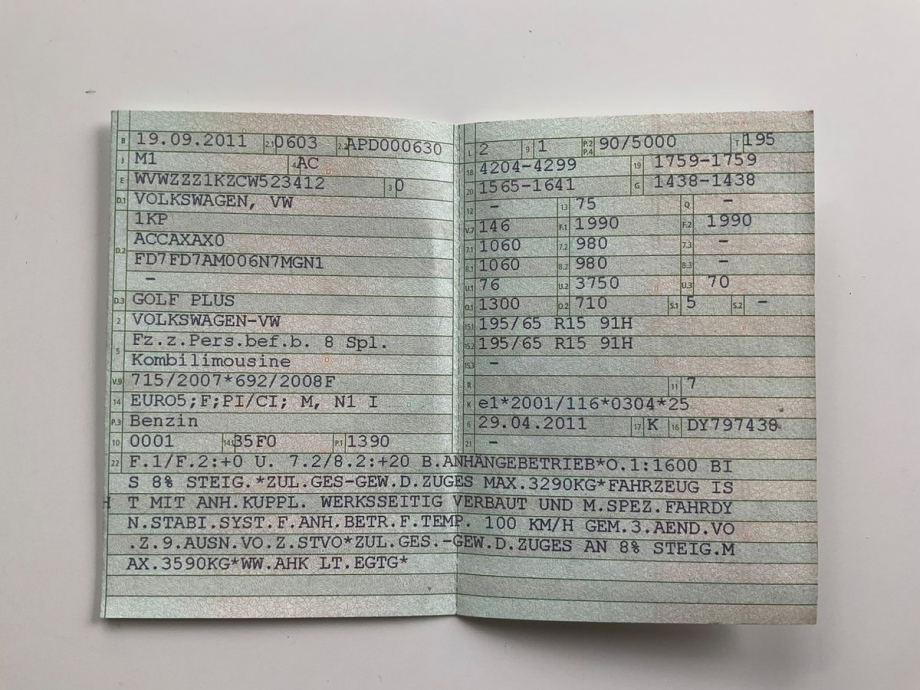 B 19.09.2011 2.1 0603 2.2 APD000630
J M1 4 AC
E WVWZZZ1KZCW523412 3 0
D.1 VOLKSWAGEN, VW
1KP
D.2 ACCAXAX0
FD7FD7AM006N7MGN1
–
D.3 GOLF PLUS
2 VOLKSWAGEN-VW
5 Fz.z.Pers.bef.b. 8 Spl.
Kombilimousine
V.9 715/2007*692/2008F
14 EURO5;F;PI/CI; M, N1 I
P.3 Benzin
10 0001 14.1 35F0 P.1 1390
L 2 9 1 P.2 P.4 90/5000 T 195
18 4204-4299 19 1759-1759
20 1565-1641 G 1438-1438
12 – 13 75 Q –
V.7 146 F.1 1990 F.2 1990
7.1 1060 7.2 980 7.3 –
8.1 1060 8.2 980 8.3 –
U.1 76 U.2 3750 U.3 70
O.1 1300 O.2 710 S.1 5 S.2 –
15.1 195/65 R15 91H
15.2 195/65 R15 91H
15.3 –
R 11 7
K e1*2001/116*0304*25
6 29.04.2011 17 K 16 DY797438
21 –
22 F.1/F.2:+0 U. 7.2/8.2:+20 B.ANHÄNGEBETRIEB*O.1:1600 BI
S 8% STEIG.*ZUL.GES-GEW.D.ZUGES MAX.3290KG*FAHRZEUG IS
T MIT ANH.KUPPL. WERKSSEITIG VERBAUT UND M.SPEZ.FAHRDY
N.STABI.SYST.F.ANH.BETR.F.TEMP. 100 KM/H GEM.3.AEND.VO
.Z.9.AUSN.VO.Z.STVO*ZUL.GES.-GEW.D.ZUGES AN 8% STEIG.M
AX.3590KG*WW.AHK LT.EGTG*